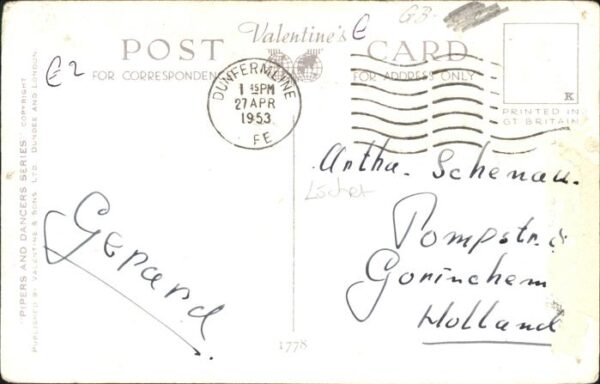 POST Valentine's CARD
FOR CORRESPONDENCE FOR ADDRESS ONLY
G3.
€
€2
DUNFERMLINE
1 15 PM
27 APR
1953
FE
K
PRINTED IN
GT BRITAIN
"PIPERS AND DANCERS SERIES" COPYRIGHT
PUBLISHED BY VALENTINE & SONS LTD. DUNDEE AND LONDON
Gerard.
Artha. Schenau.
Pompstr.
Gorinchem
Holland
1778